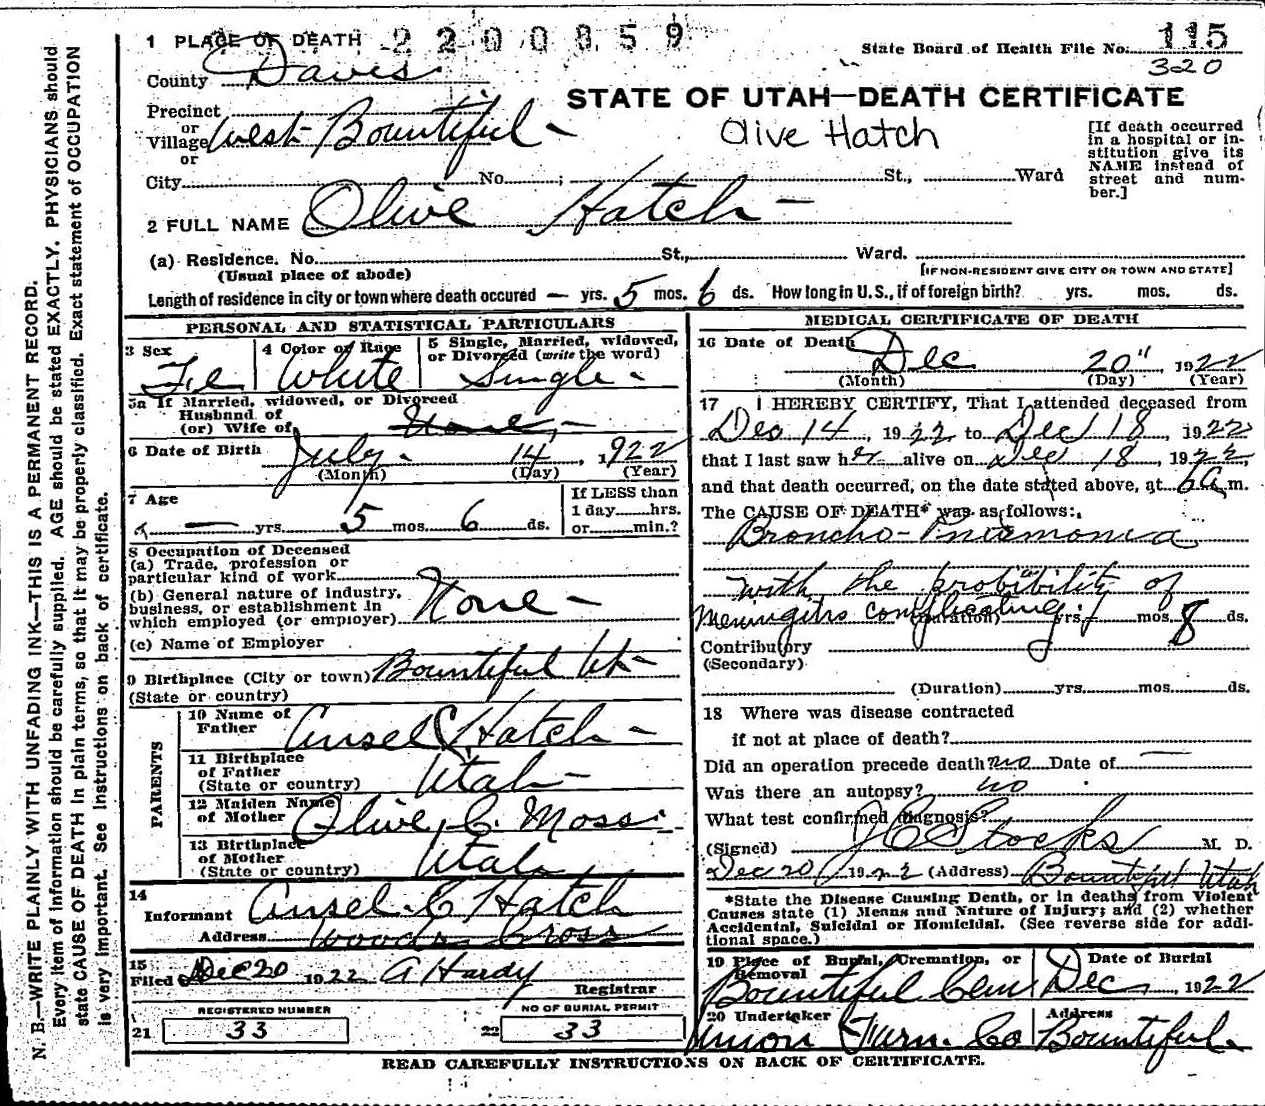 1 PLACE OF DEATH 2200859
State Board of Health File No. 115
320
County Davis
STATE OF UTAH—DEATH CERTIFICATE
Precinct
or
Village West Bountiful -
or
Olive Hatch
[If death occurred in a hospital or in-
stitution give its
NAME instead of
street and num-
ber.]
City No. ; St., Ward
2 FULL NAME Olive Hatch -
(a) Residence. No. St., Ward.
(Usual place of abode) [IF NON-RESIDENT GIVE CITY OR TOWN AND STATE]
Length of residence in city or town where death occured — yrs. 5 mos. 6 ds. How long in U.S., if of foreign birth? yrs. mos. ds.
PERSONAL AND STATISTICAL PARTICULARS
3 Sex 4 Color or Race 5 Single, Married, widowed,
or Divorced (write the word)
Fe White Single -
5a If Married, widowed, or Divorced
Husband of
(or) Wife of None, -
6 Date of Birth July 14, 1922
(Month) (Day) (Year)
7 Age — yrs. 5 mos. 6 ds.
If LESS than
1 day hrs.
or min.?
8 Occupation of Deceased
(a) Trade, profession or
particular kind of work
(b) General nature of industry,
business, or establishment in
which employed (or employer) None -
(c) Name of Employer
9 Birthplace (City or town) Bountiful Ut -
(State or country)
PARENTS
10 Name of
Father Ansel C Hatch -
11 Birthplace
of Father Utah -
(State or country)
12 Maiden Name
of Mother Olive C. Moss
13 Birthplace
of Mother Utah
(State or country)
14
Informant Ansel C Hatch
Address Woods Cross
15
Filed Dec 20 1922 A Hardy
Registrar
REGISTERED NUMBER NO OF BURIAL PERMIT
21 33 22 33
MEDICAL CERTIFICATE OF DEATH
16 Date of Death Dec 20", 1922
(Month) (Day) (Year)
17 I HEREBY CERTIFY, That I attended deceased from
Dec 14, 1922 to Dec 18, 1922
that I last saw her alive on Dec 18, 1922,
and that death occurred, on the date stated above, at 6 a m.
The CAUSE OF DEATH* was as follows:
Broncho-Pneumonia
with the probibility of
Meningitis complicating.
(Duration) yrs. mos. 8 ds.
Contributory
(Secondary)
(Duration) yrs. mos. ds.
18 Where was disease contracted
if not at place of death?
Did an operation precede death? no Date of —
Was there an autopsy? no
What test confirmed diagnosis?
(Signed) J C Stocks M. D.
Dec 20 1922 (Address) Bountiful Utah
*State the Disease Causing Death, or in deaths from Violent
Causes state (1) Means and Nature of Injury; and (2) whether
Accidental, Suicidal or Homicidal. (See reverse side for addi-
tional space.)
19 Place of Burial, Cremation, or
Removal
Date of Burial
Bountiful Cem Dec 1922
20 Undertaker Address
Union Furn. Co Bountiful.
READ CAREFULLY INSTRUCTIONS ON BACK OF CERTIFICATE.
N. B.—WRITE PLAINLY WITH UNFADING INK—THIS IS A PERMANENT RECORD.
Every item of information should be carefully supplied. AGE should be stated EXACTLY. PHYSICIANS should
state CAUSE OF DEATH in plain terms, so that it may be properly classified. Exact statement of OCCUPATION
is very important. See instructions on back of certificate.